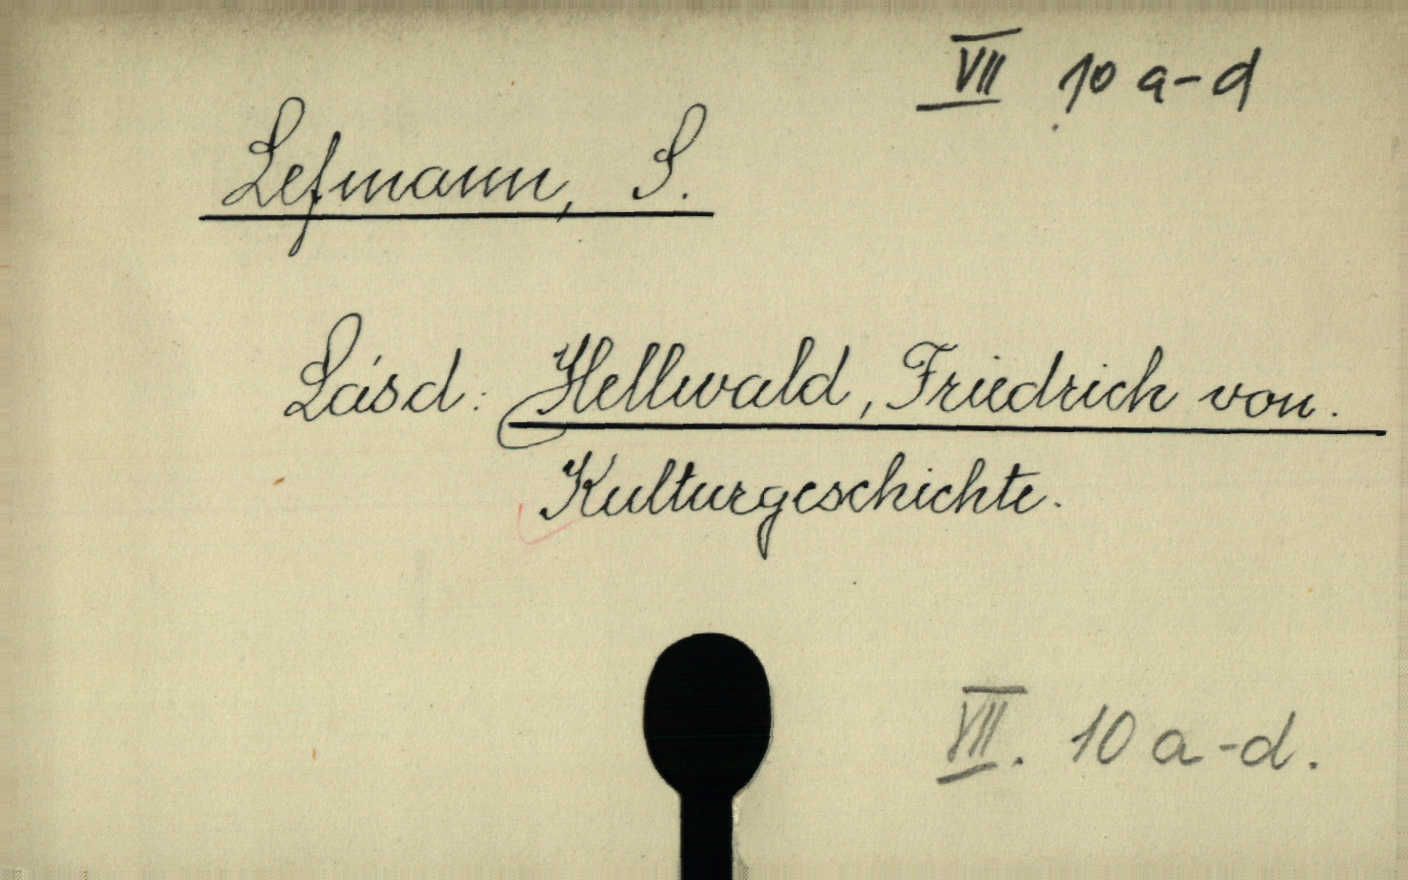 VII 10 a-d
Lefmann, S.
Lásd: Hellwald, Friedrich von.
Kulturgeschichte.
VII. 10 a-d.